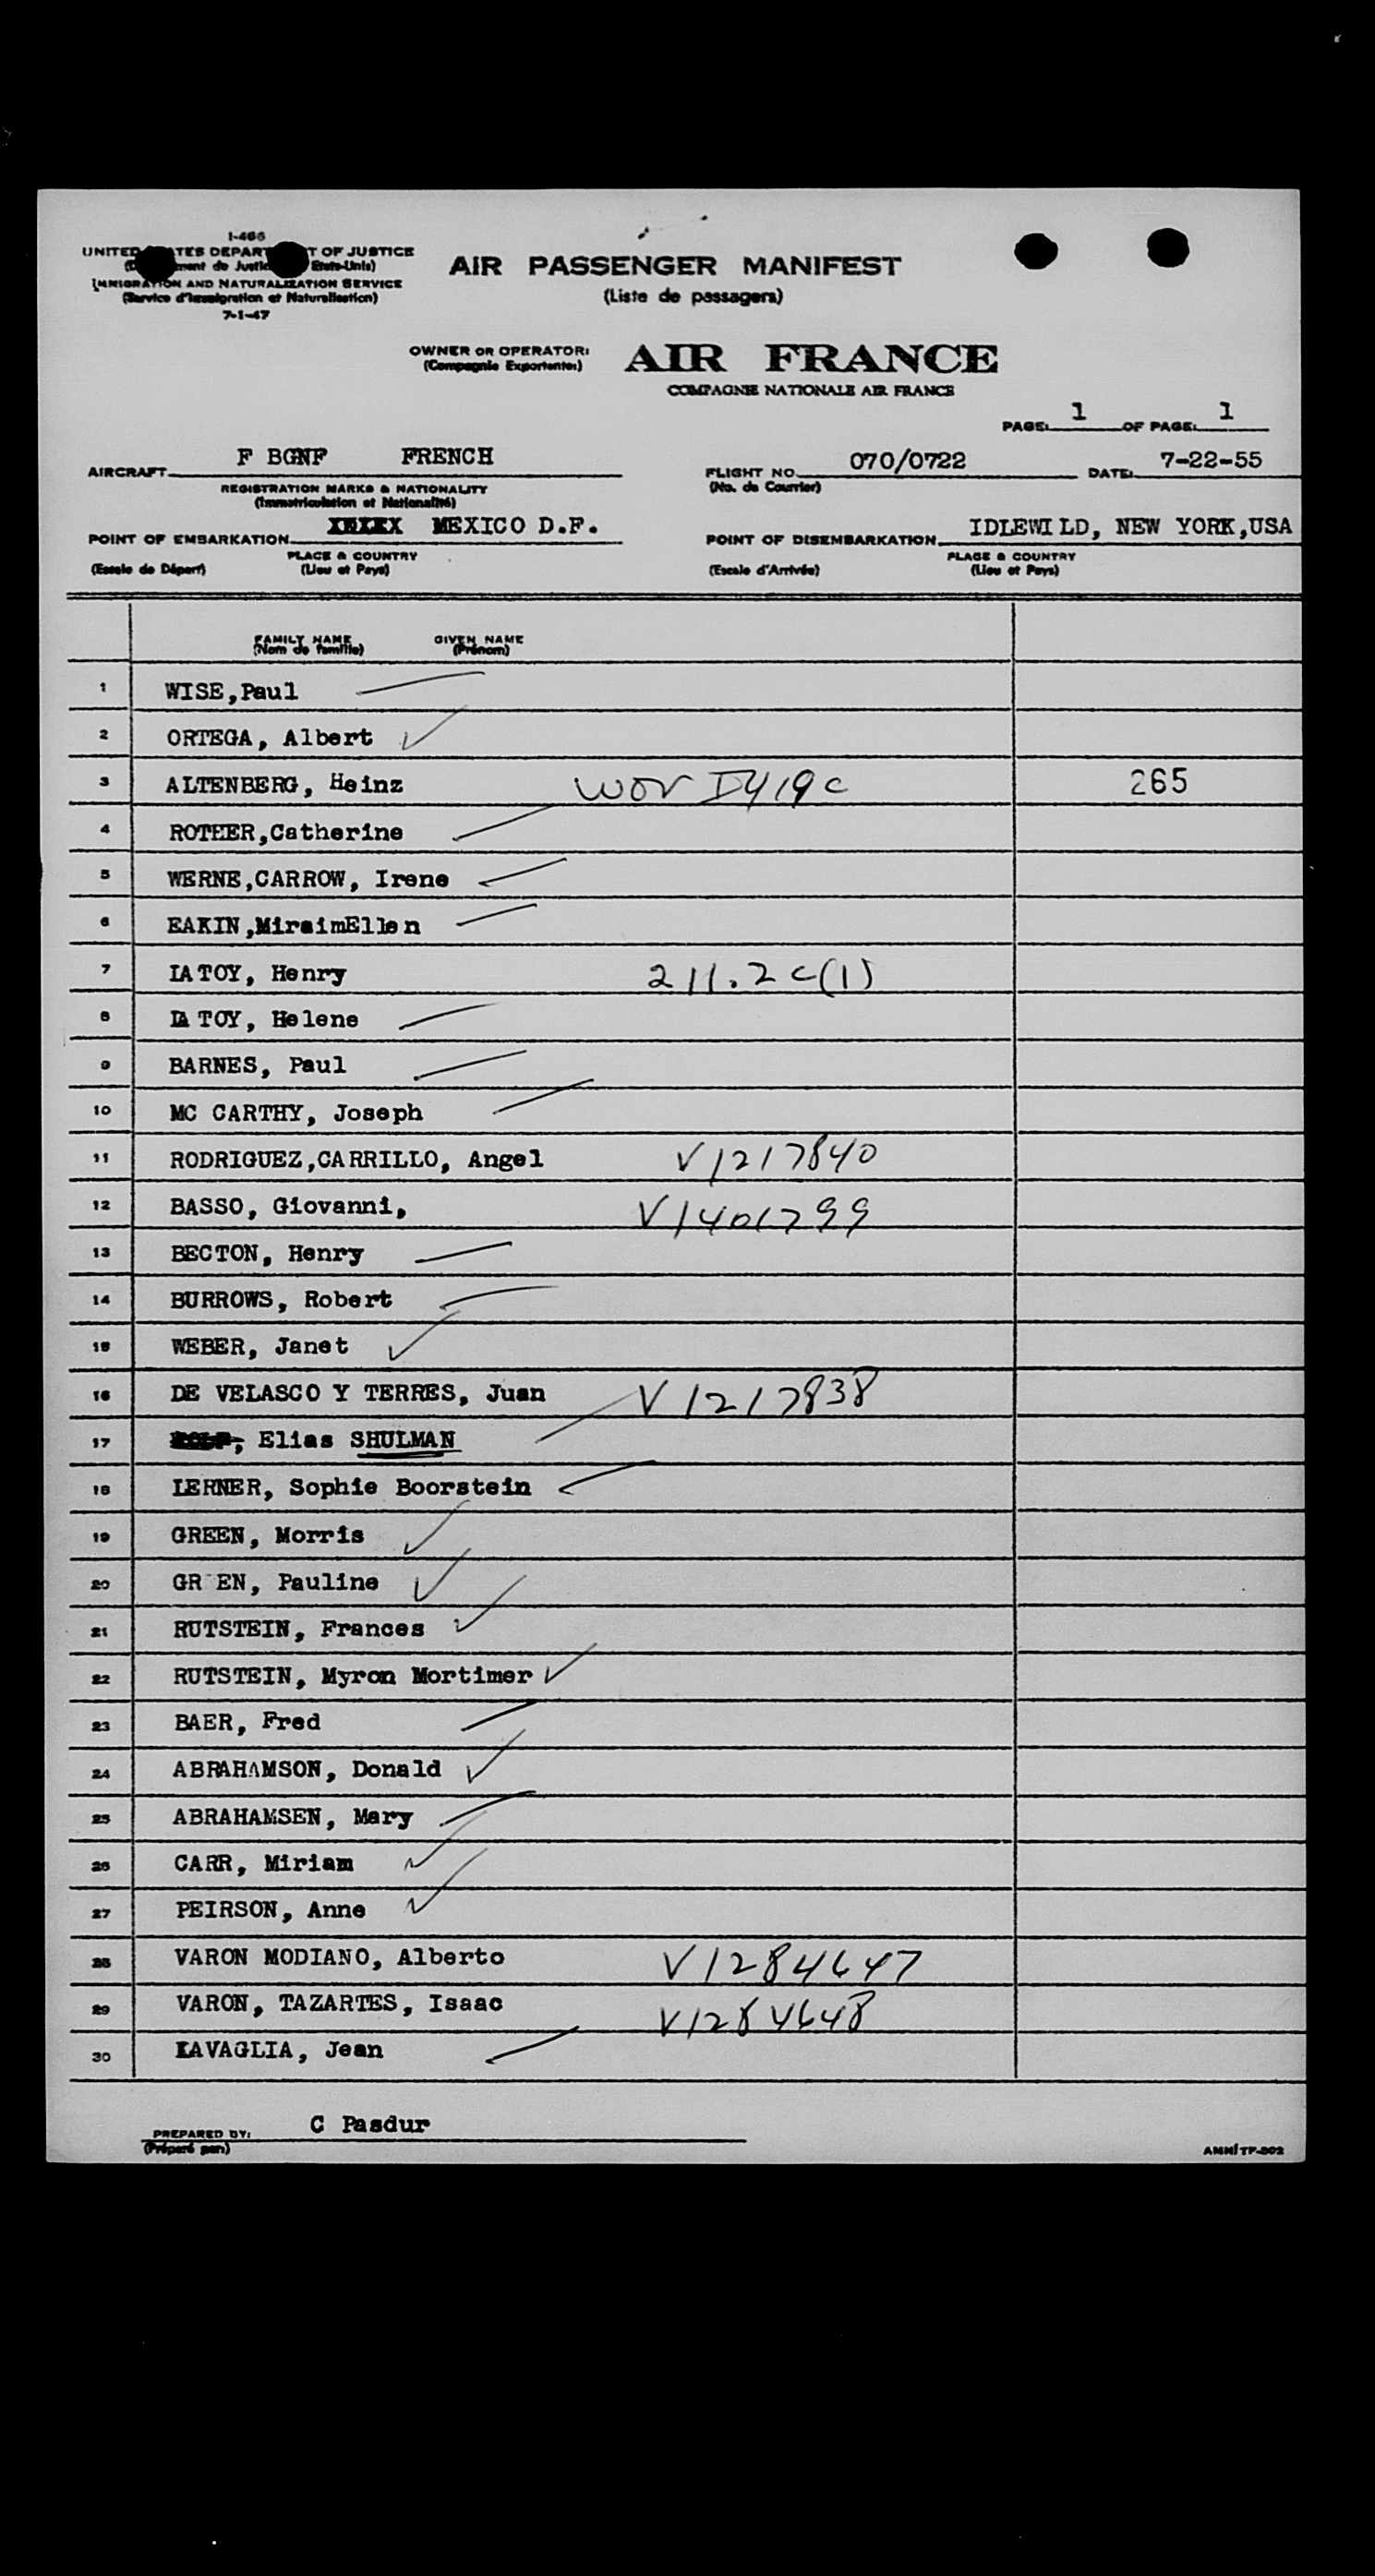 I-466
UNITED STATES DEPARTMENT OF JUSTICE
ment de Justice Etats-Unis)
IMMIGRATION AND NATURALIZATION SERVICE
(Service d'Immigration et Naturalisation)
7-1-47
AIR PASSENGER MANIFEST
(Liste de passagers)
OWNER OR OPERATOR:
(Compagnie Exportente:)
AIR FRANCE
COMPAGNIE NATIONALE AIR FRANCE
PAGE: 1 OF PAGE: 1
AIRCRAFT F BGNP FRENCH
REGISTRATION MARKS & NATIONALITY
(Immatriculation et Nationalité)
FLIGHT NO. 070/0722 DATE: 7-22-55
(No. de Courrier)
POINT OF EMBARKATION MEXICO D.F.
PLACE & COUNTRY
(Escale de Départ) (Lieu et Pays)
POINT OF DISEMBARKATION IDLEWILD, NEW YORK,USA
PLACE & COUNTRY
(Escale d'Arrivée) (Lieu et Pays)
FAMILY NAME GIVEN NAME
(Nom de famille) (Prénom)
1 WISE,Paul
2 ORTEGA, Albert
3 ALTENBERG, Heinz WOV D419c 265
4 ROTHER,Catherine
5 WERNE,CARROW, Irene
6 EAKIN,MiraimEllen
7 LA TOY, Henry 211.2c(1)
8 LA TOY, Helene
9 BARNES, Paul
10 MC CARTHY, Joseph
11 RODRIGUEZ,CARRILLO, Angel V1217840
12 BASSO, Giovanni, V1401799
13 BECTON, Henry
14 BURROWS, Robert
15 WEBER, Janet
16 DE VELASCO Y TERRES, Juan V1217838
17 Elias SHULMAN
18 LERNER, Sophie Boorstein
19 GREEN, Morris
20 GR EN, Pauline
21 RUTSTEIN, Frances
22 RUTSTEIN, Myron Mortimer
23 BAER, Fred
24 ABRAHAMSON, Donald
25 ABRAHAMSEN, Mary
26 CARR, Miriam
27 PEIRSON, Anne
28 VARON MODIANO, Alberto V1284647
29 VARON, TAZARTES, Isaac V1284648
30 LAVAGLIA, Jean
PREPARED BY: C Pasdur
(Préparé par)